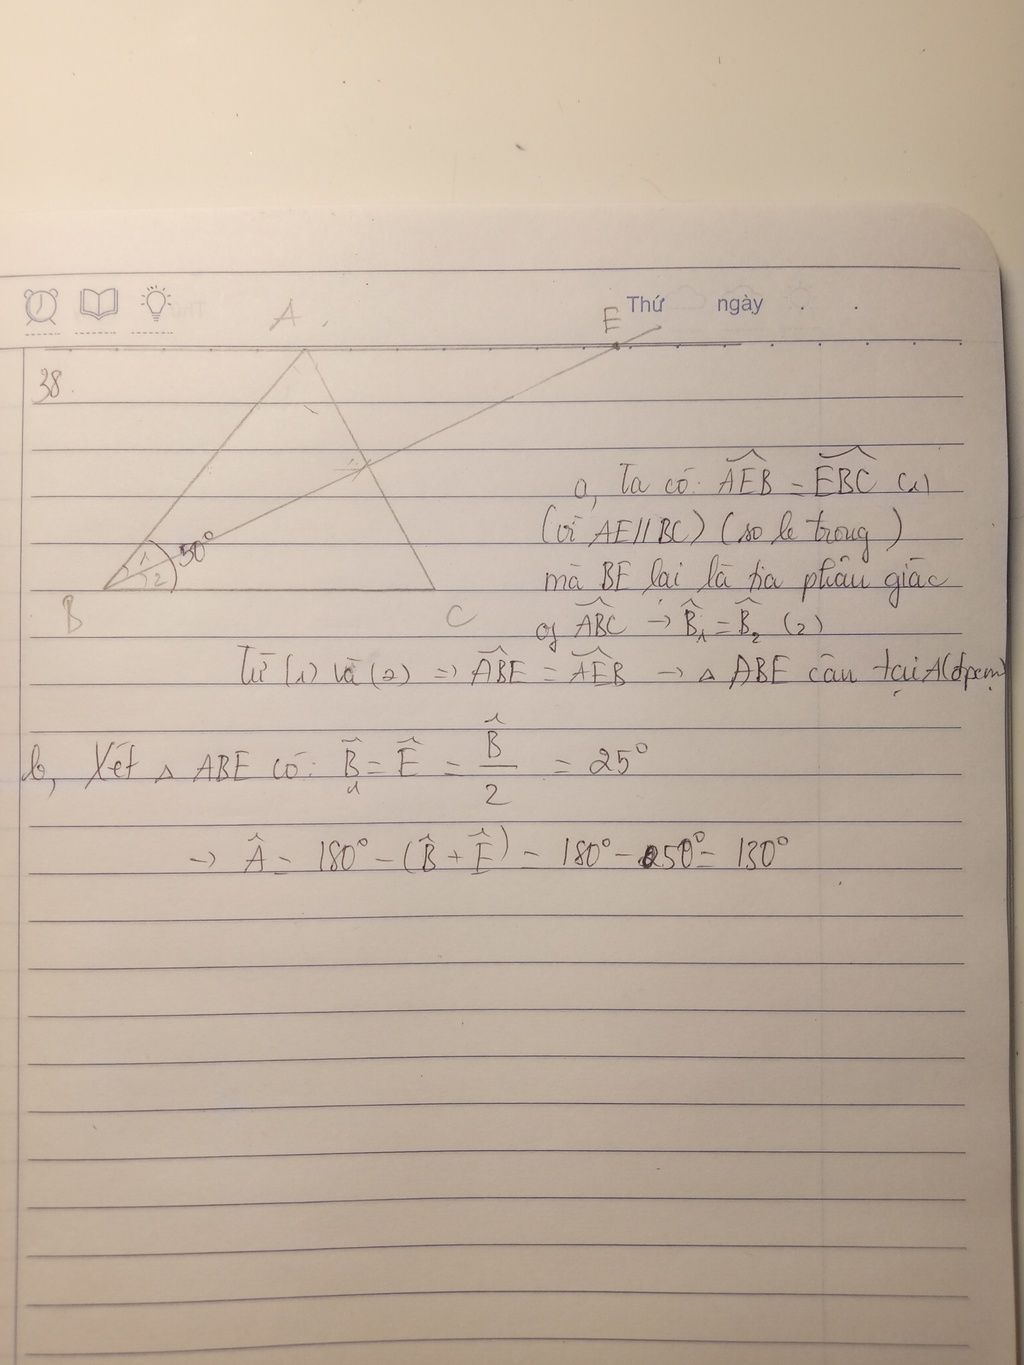 Thứ ngày . .
A
E
38.
1
2
50°
B
C
a, Ta có: AEB = EBC (1)
(vì AE//BC) (so le trong)
mà BE lại là tia phân giác
of ABC → B̂₁ = B̂₂ (2)
Từ (1) và (2) => ABE = AEB → △ ABE cân tại A (đpcm)
b, Xét △ ABE có: B̂₁ = Ê = B̂/2 = 25°
→ Â = 180° - (B̂ + Ê) = 180° - 50° = 130°